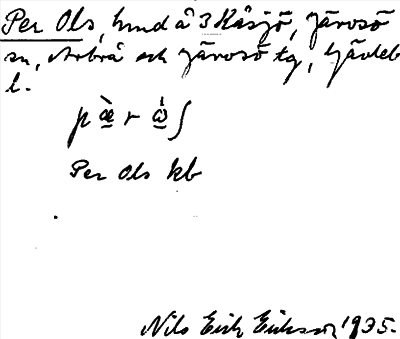 Per Ols, hmd å 3 Kåsjö, Järvsö
sn, Arbrå och Järvsö tg, Gävleb
l.
pæ̀r ὼʃ
Per Ols kb
Nils Eric Eriksson 1935.